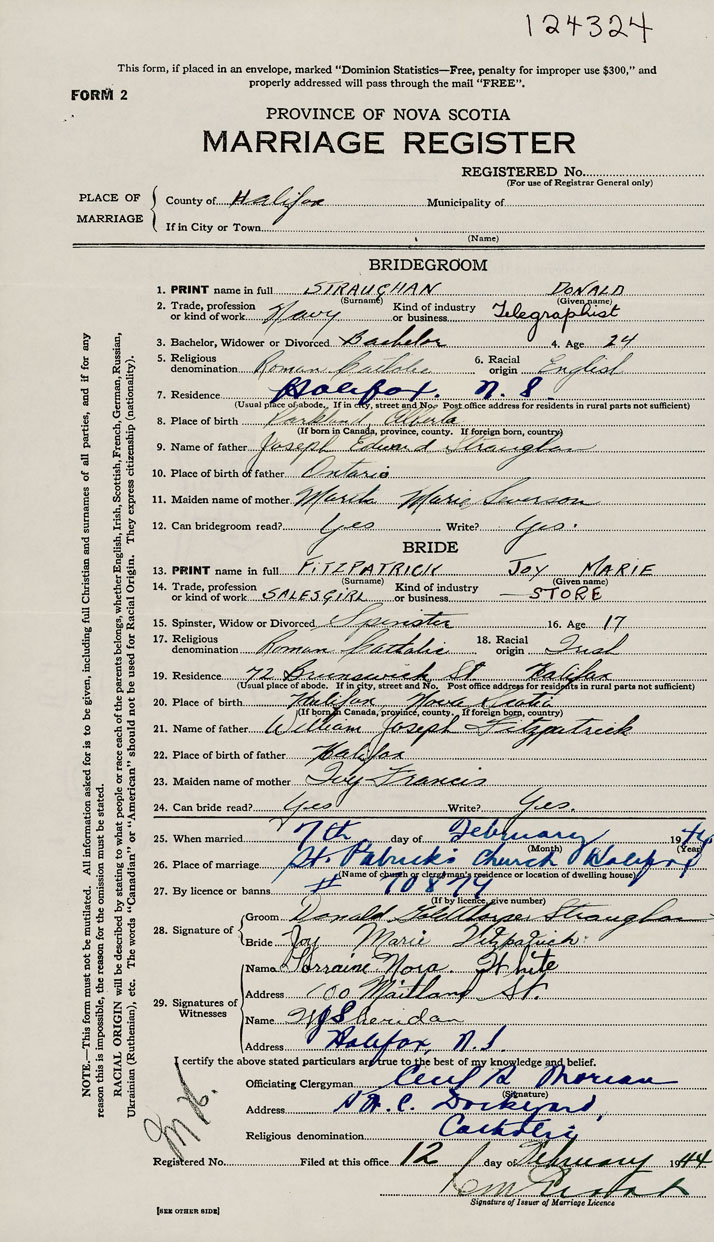 124324
This form, if placed in an envelope, marked "Dominion Statistics—Free, penalty for improper use $300," and
properly addressed will pass through the mail "FREE".
FORM 2
PROVINCE OF NOVA SCOTIA
MARRIAGE REGISTER
REGISTERED No.
(For use of Registrar General only)
PLACE OF MARRIAGE
County of Halifax Municipality of
If in City or Town
(Name)
BRIDEGROOM
1. PRINT name in full STRAUGHAN DONALD
(Surname) (Given name)
2. Trade, profession or kind of work Navy Kind of industry or business Telegraphist
3. Bachelor, Widower or Divorced Bachelor 4. Age 24
5. Religious denomination Roman Catholic 6. Racial origin English
7. Residence Halifax. N.S.
(Usual place of abode. If in city, street and No. Post office address for residents in rural parts not sufficient)
8. Place of birth Alberta
(If born in Canada, province, county. If foreign born, country)
9. Name of father Joseph Edward Straughan
10. Place of birth of father Ontario
11. Maiden name of mother Marie
12. Can bridegroom read? Yes Write? Yes.
BRIDE
13. PRINT name in full FITZPATRICK JOY MARIE
(Surname) (Given name)
14. Trade, profession or kind of work SALESGIRL Kind of industry or business — STORE
15. Spinster, Widow or Divorced Spinster 16. Age 17
17. Religious denomination Roman Catholic 18. Racial origin Irish
19. Residence 72 Brunswick St Halifax
(Usual place of abode. If in city, street and No. Post office address for residents in rural parts not sufficient)
20. Place of birth Halifax Nova Scotia
(If born in Canada, province, county. If foreign born, country)
21. Name of father William Joseph Fitzpatrick
22. Place of birth of father Halifax
23. Maiden name of mother Ivy Francis
24. Can bride read? Yes Write? Yes.
25. When married 7th day of February 1944
(Month) (Year)
26. Place of marriage St. Patrick's Church Halifax
(Name of church or clergyman's residence or location of dwelling house)
27. By licence or banns # 70874
(If by licence, give number)
28. Signature of
Groom Donald Straughan
Bride Joy Marie Fitzpatrick
29. Signatures of Witnesses
Name Lorraine Nora White
Address 100 Maitland St.
Name Sheridan
Address Halifax, N.S.
I certify the above stated particulars are true to the best of my knowledge and belief.
Officiating Clergyman Cecil
(Signature)
Address Dockyard,
Religious denomination Catholic
Registered No. Filed at this office 12 day of February 1944
Signature of Issuer of Marriage Licence
[SEE OTHER SIDE]
NOTE.—This form must not be mutilated. All information asked for is to be given, including full Christian and surnames of all parties, and if for any
reason this is impossible, the reason for the omission must be stated.
RACIAL ORIGIN will be described by stating to what people or race each of the parents belongs, whether English, Irish, Scottish, French, German, Russian,
Ukrainian (Ruthenian), etc. The words "Canadian" or "American" should not be used for Racial Origin. They express citizenship (nationality).